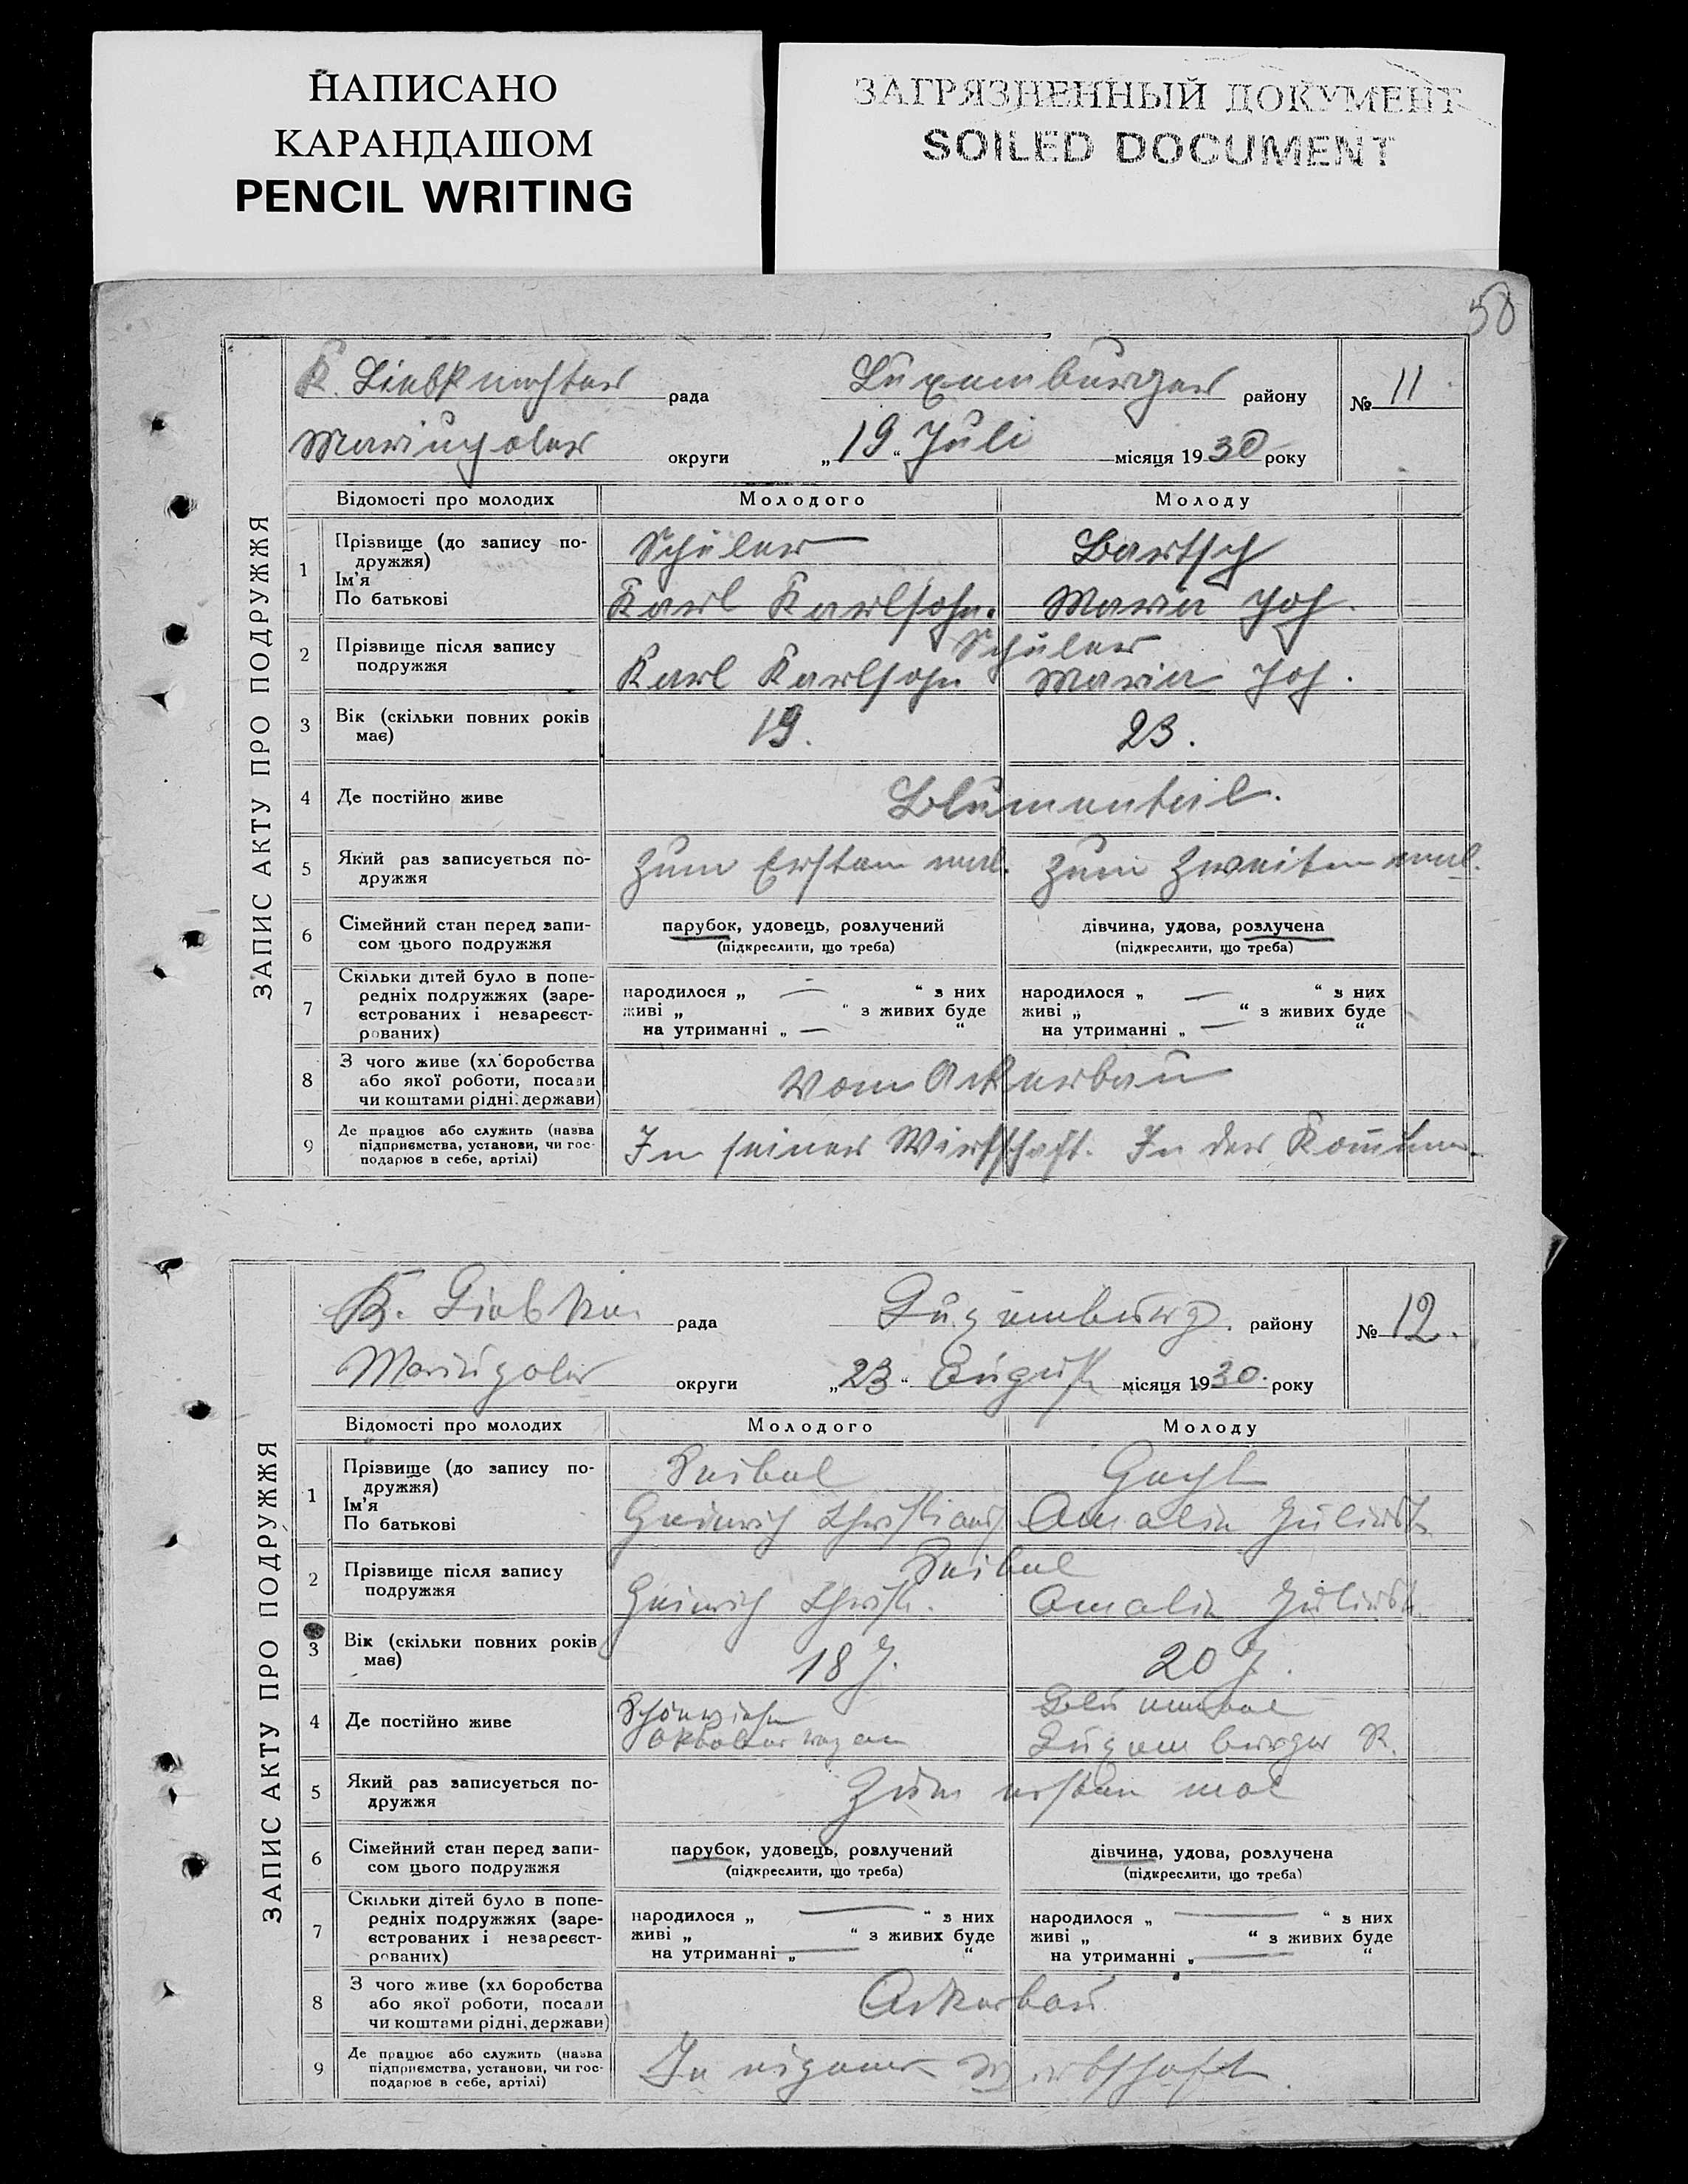 НАПИСАНО
КАРАНДАШОМ
PENCIL WRITING
ЗАГРЯЗНЕННЫЙ ДОКУМЕНТ
SOILED DOCUMENT
50
ЗАПИС АКТУ ПРО ПОДРУЖЖЯ
K. Liebknechter рада Luxemburger району № 11.
Mariupoler округи „19“ Juli місяця 1930 року
Відомості про молодих Молодого Молоду
1 Прізвище (до запису по-
дружжя)
Ім'я
По батькові
Schüler Bartsch
Karl Karlsohn. Maria Joh.
2 Прізвище після запису
подружжя
Schüler
Karl Karlsohn Maria Joh.
3 Вік (скільки повних років
має)
19. 23.
4 Де постійно живе Blumenteil.
5 Який раз записується по-
дружжя
Zum Ersten mal. Zum Zweiten mal.
6 Сімейний стан перед запи-
сом цього подружжя
парубок, удовець, розлучений
(підкреслити, що треба)
дівчина, удова, розлучена
(підкреслити, що треба)
7 Скільки дітей було в попе-
редніх подружжях (заре-
єстрованих і незареєст-
рованих)
народилося „ — “ з них
живі „ “ з живих буде
на утриманні „ — “
народилося „ — “ з них
живі „ “ з живих буде
на утриманні „ — “
8 З чого живе (хліборобства
або якої роботи, посади
чи коштами рідні, держави)
Vom Ackerbau
9 Де працює або служить (назва
підприємства, установи, чи гос-
подарює в себе, артілі)
In seiner Wirtschaft. In der
ЗАПИС АКТУ ПРО ПОДРУЖЖЯ
K. Liebkn. рада Luxemburg. району № 12.
Mariupoler округи „23“ August місяця 1930. року
Відомості про молодих Молодого Молоду
1 Прізвище (до запису по-
дружжя)
Ім'я
По батькові
Seibel
Heinrich Amalia
2 Прізвище після запису
подружжя
Seibel
Heinrich Christ. Amalia
3 Вік (скільки повних років
має)
18 J. 20 J.
4 Де постійно живе
Schönwiese Blumental
Luxemburger R.
5 Який раз записується по-
дружжя
Zum ersten mal
6 Сімейний стан перед запи-
сом цього подружжя
парубок, удовець, розлучений
(підкреслити, що треба)
дівчина, удова, розлучена
(підкреслити, що треба)
7 Скільки дітей було в попе-
редніх подружжях (заре-
єстрованих і незареєст-
рованих)
народилося „ — “ з них
живі „ “ з живих буде
на утриманні „ — “
народилося „ — “ з них
живі „ “ з живих буде
на утриманні „ — “
8 З чого живе (хліборобства
або якої роботи, посади
чи коштами рідні, держави)
Ackerbau
9 Де працює або служить (назва
підприємства, установи, чи гос-
подарює в себе, артілі)
In eigener Wirtschaft.